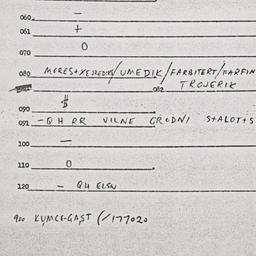 060 —
061 +
070 0
080 MERES+YEZREDIKE/UMEDIK/FARBITERT/FARFIN
082 TROJERIK
090 $
091 -QH RR VILNE GRODNI STALOT+S
100 —
110 0
120 — QH ELSN
900 KUMCE-GAST (/177020